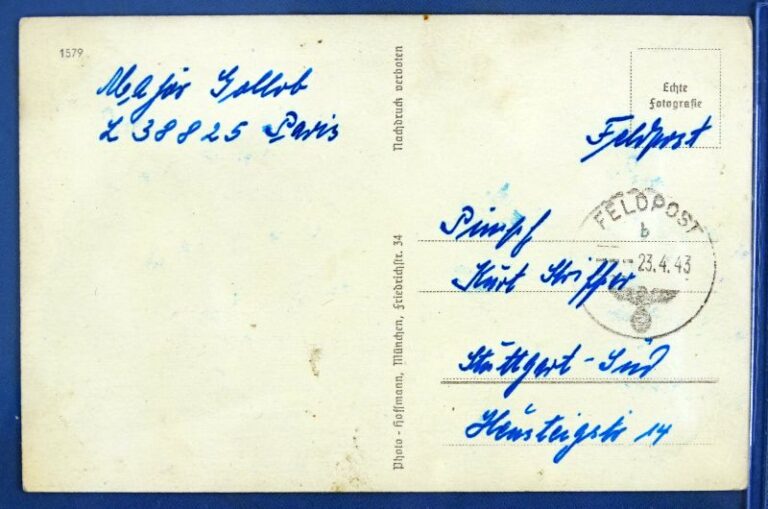 1579
Major Gollob
L 38825 Paris
Nachdruck verboten
Photo-Hoffmann, München, Friedrichstr. 34
Echte
Fotografie
Feldpost
FELDPOST
b
23.4.43
Pimpf
Kurt
Stuttgart-Süd
Heusteigstr 14